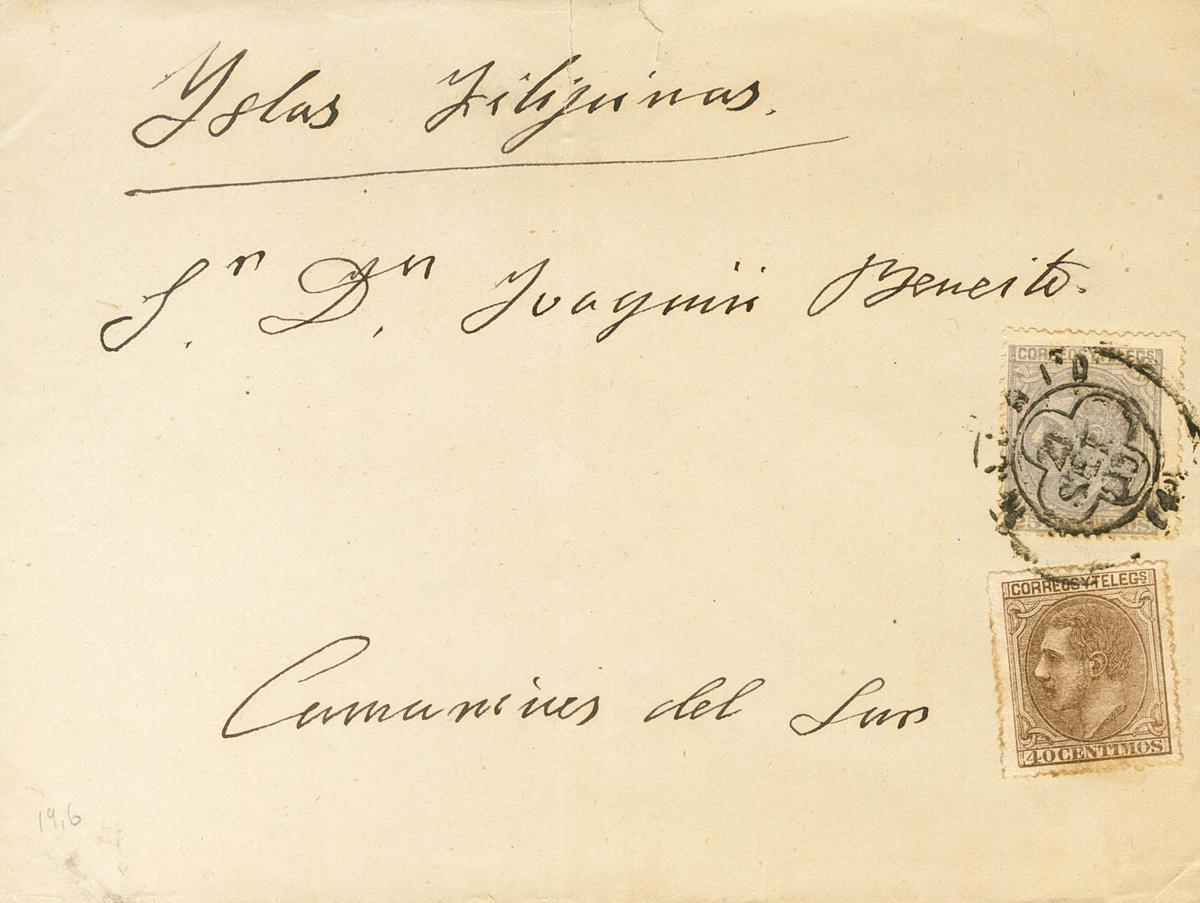 Yslas Filipinas.
S.n D.n Joaquin Beneito.
CORREOS Y TELEGS
21
SET
CORREOS Y TELEGS
40 CENTIMOS
Camarines del Sur
19,6